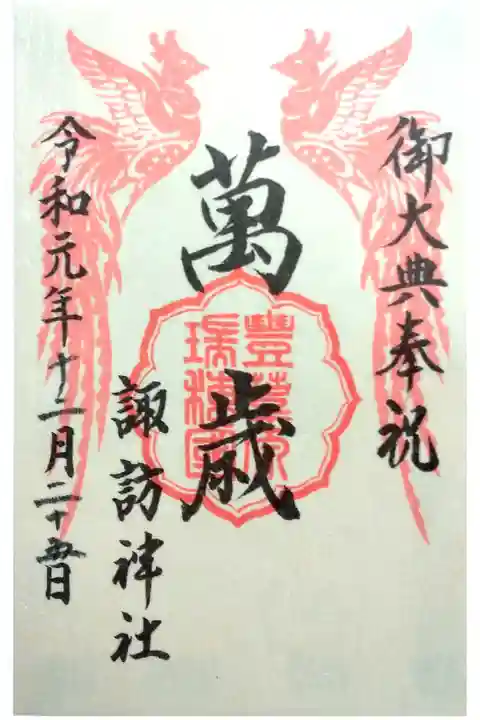 御大典奉祝
萬歳
豊葦原
瑞穂國
諏訪神社
令和元年十二月二十五日